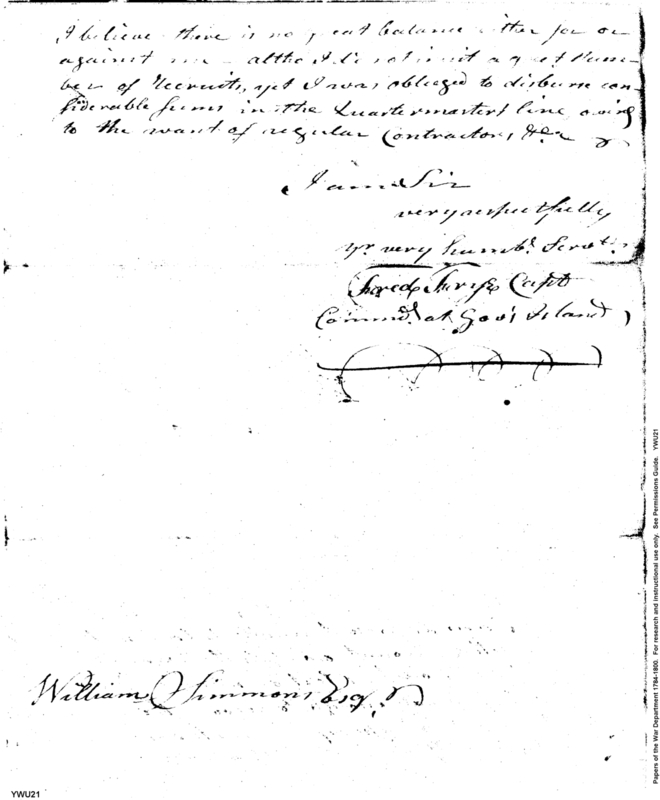 I believe there is no great balance either for or
against me - altho I do not inlist a great Num-
ber of Recruits, yet I was obliged to disburse con-
siderable sums in the Quartermasters line owing
to the want of regular Contractors, &ca
I am Sir
very respectfully
yr. very humbl. Servt.
Capt
Commdt. at Gov's Island
William Simmons Esq.
YWU21
Papers of the War Department 1784-1800. For research and instructional use only. See Permissions Guide. YWU21